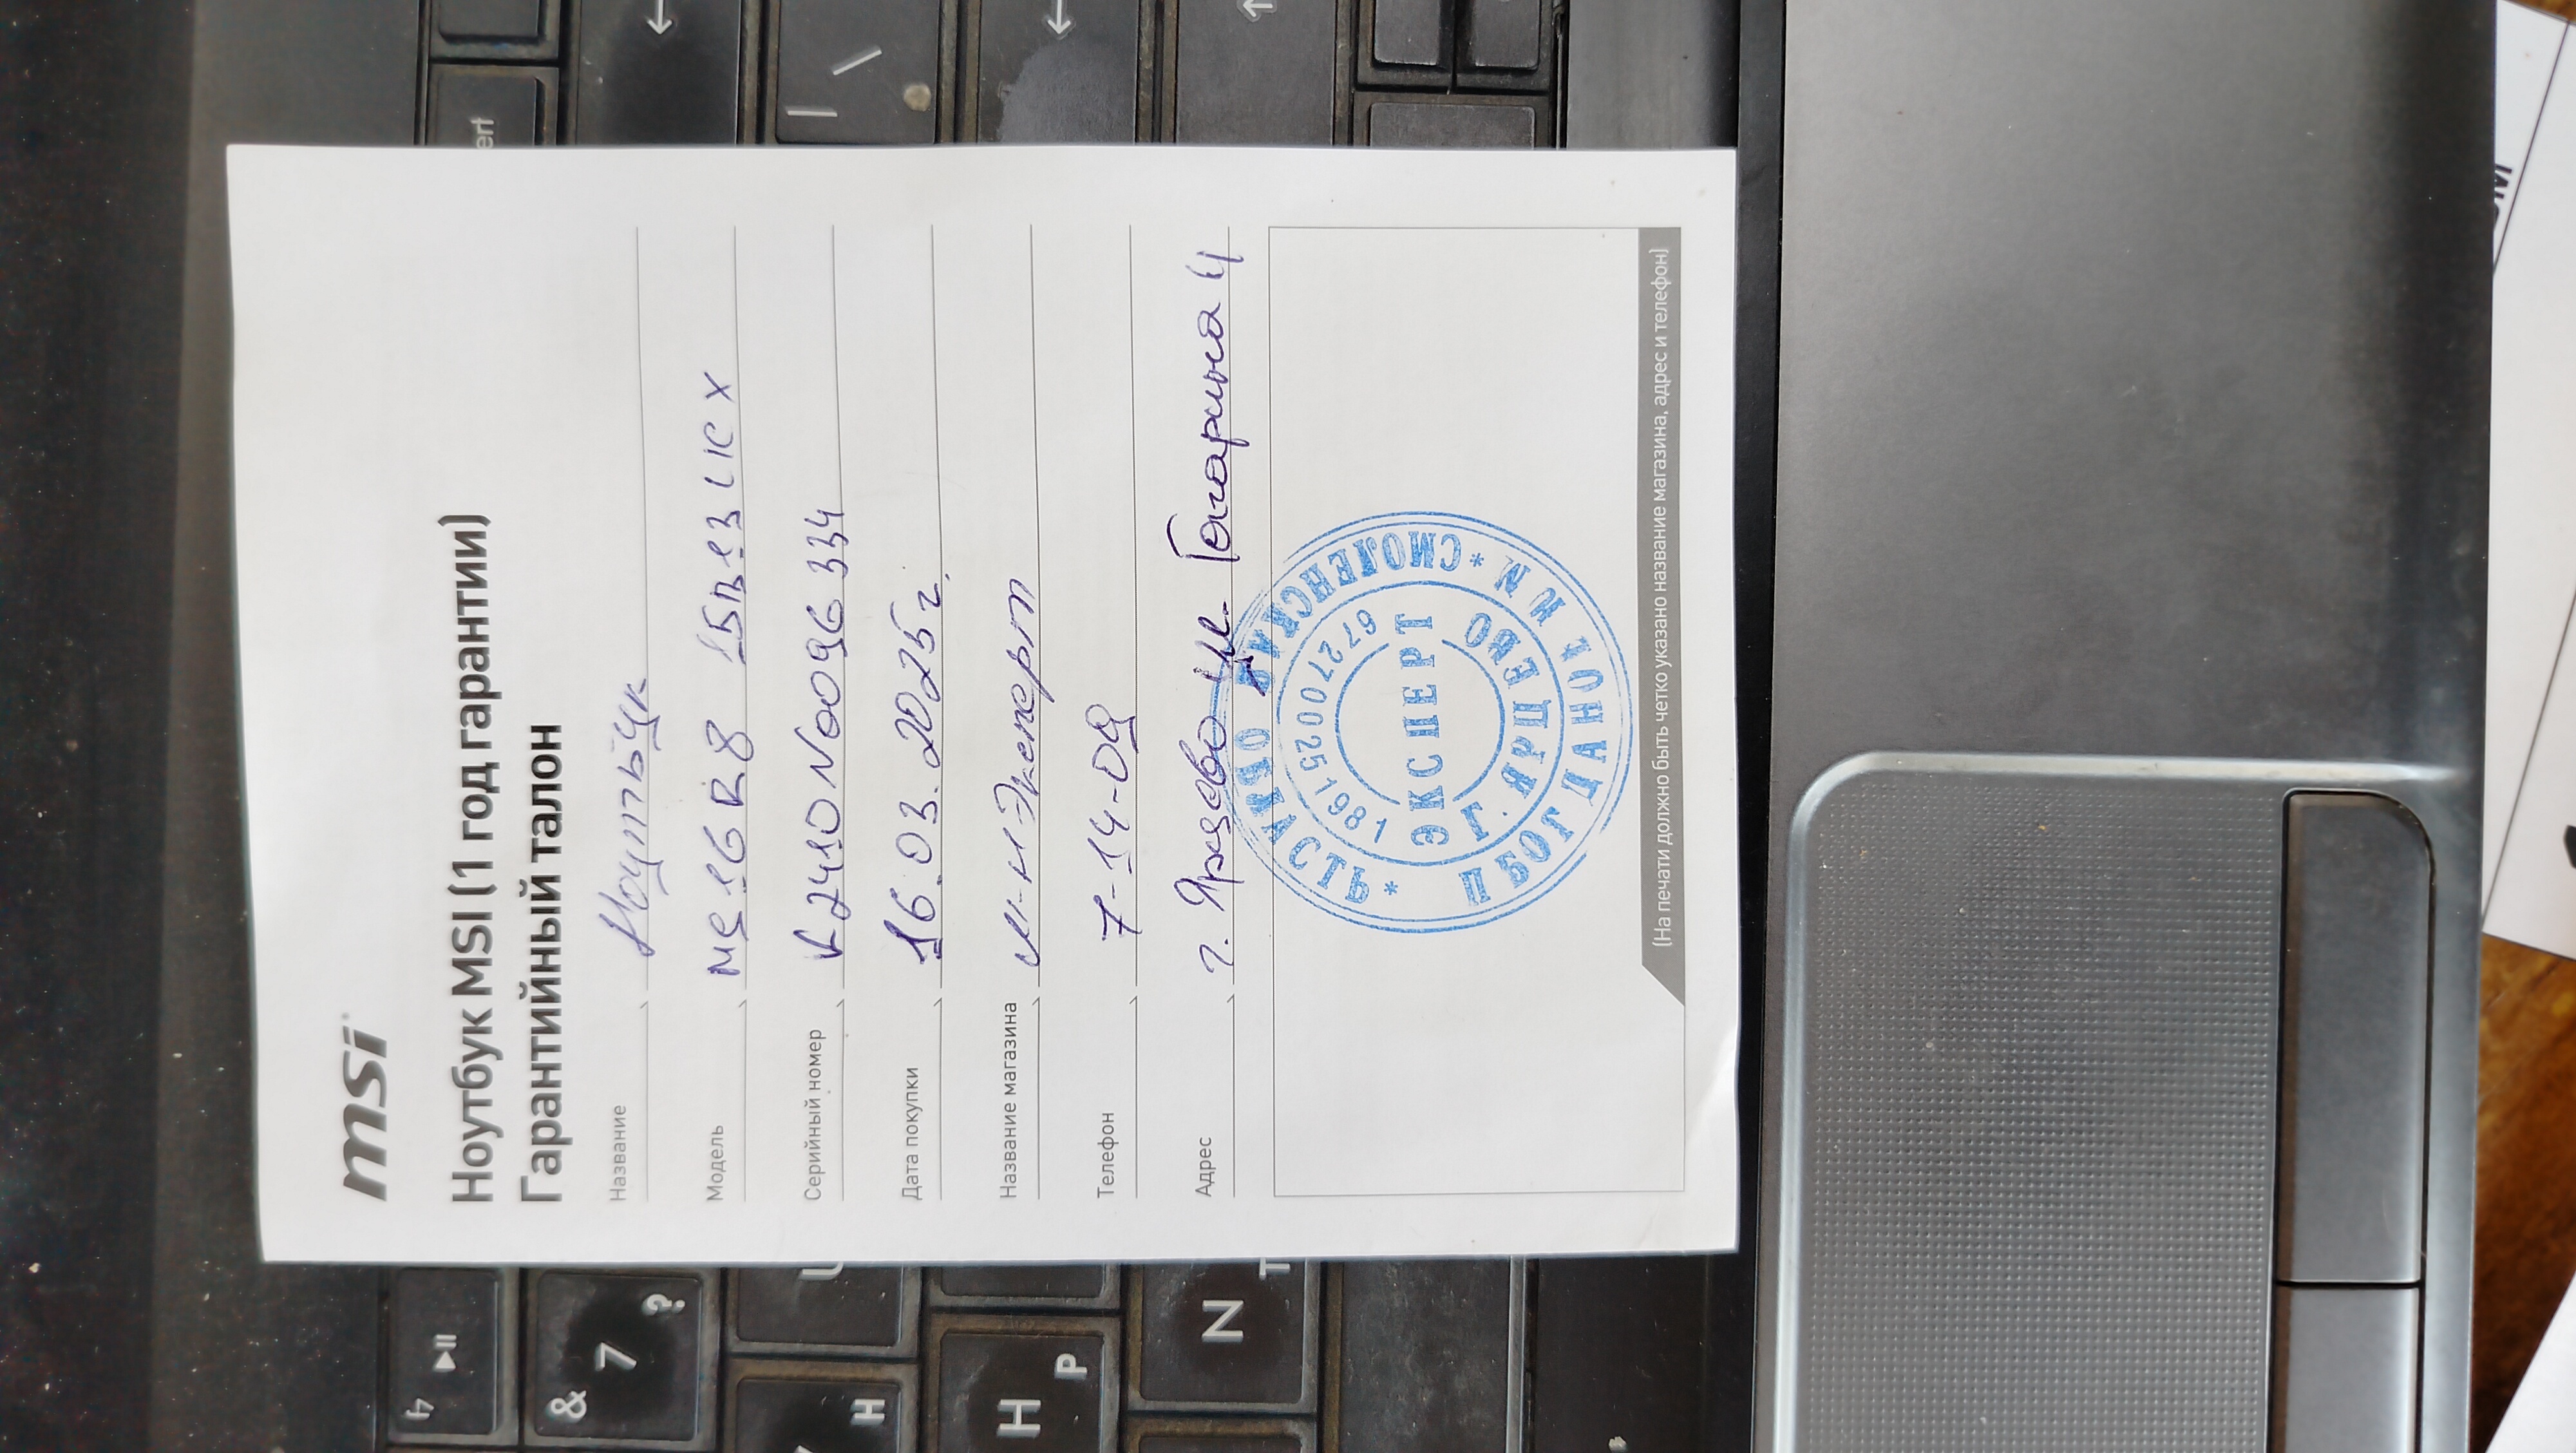 msi
Ноутбук MSI (1 год гарантии)
Гарантийный талон
Название Ноутбук
Модель MS 16R8
Серийный номер K2410N0096334
Дата покупки 16.03.2025г.
Название магазина М-н Эксперт
Телефон 7-14-09
Адрес г. Ярцево ул. Гагарина 4
ЭКСПЕРТ
Г. ЯРЦЕВО
672700251981
*СМОЛЕНСКАЯ ОБЛАСТЬ*
П БОГДАНОВ И М
(На печати должно быть четко указано название магазина, адрес и телефон)
ert
4
& 7 ?
U
H
H P
N T